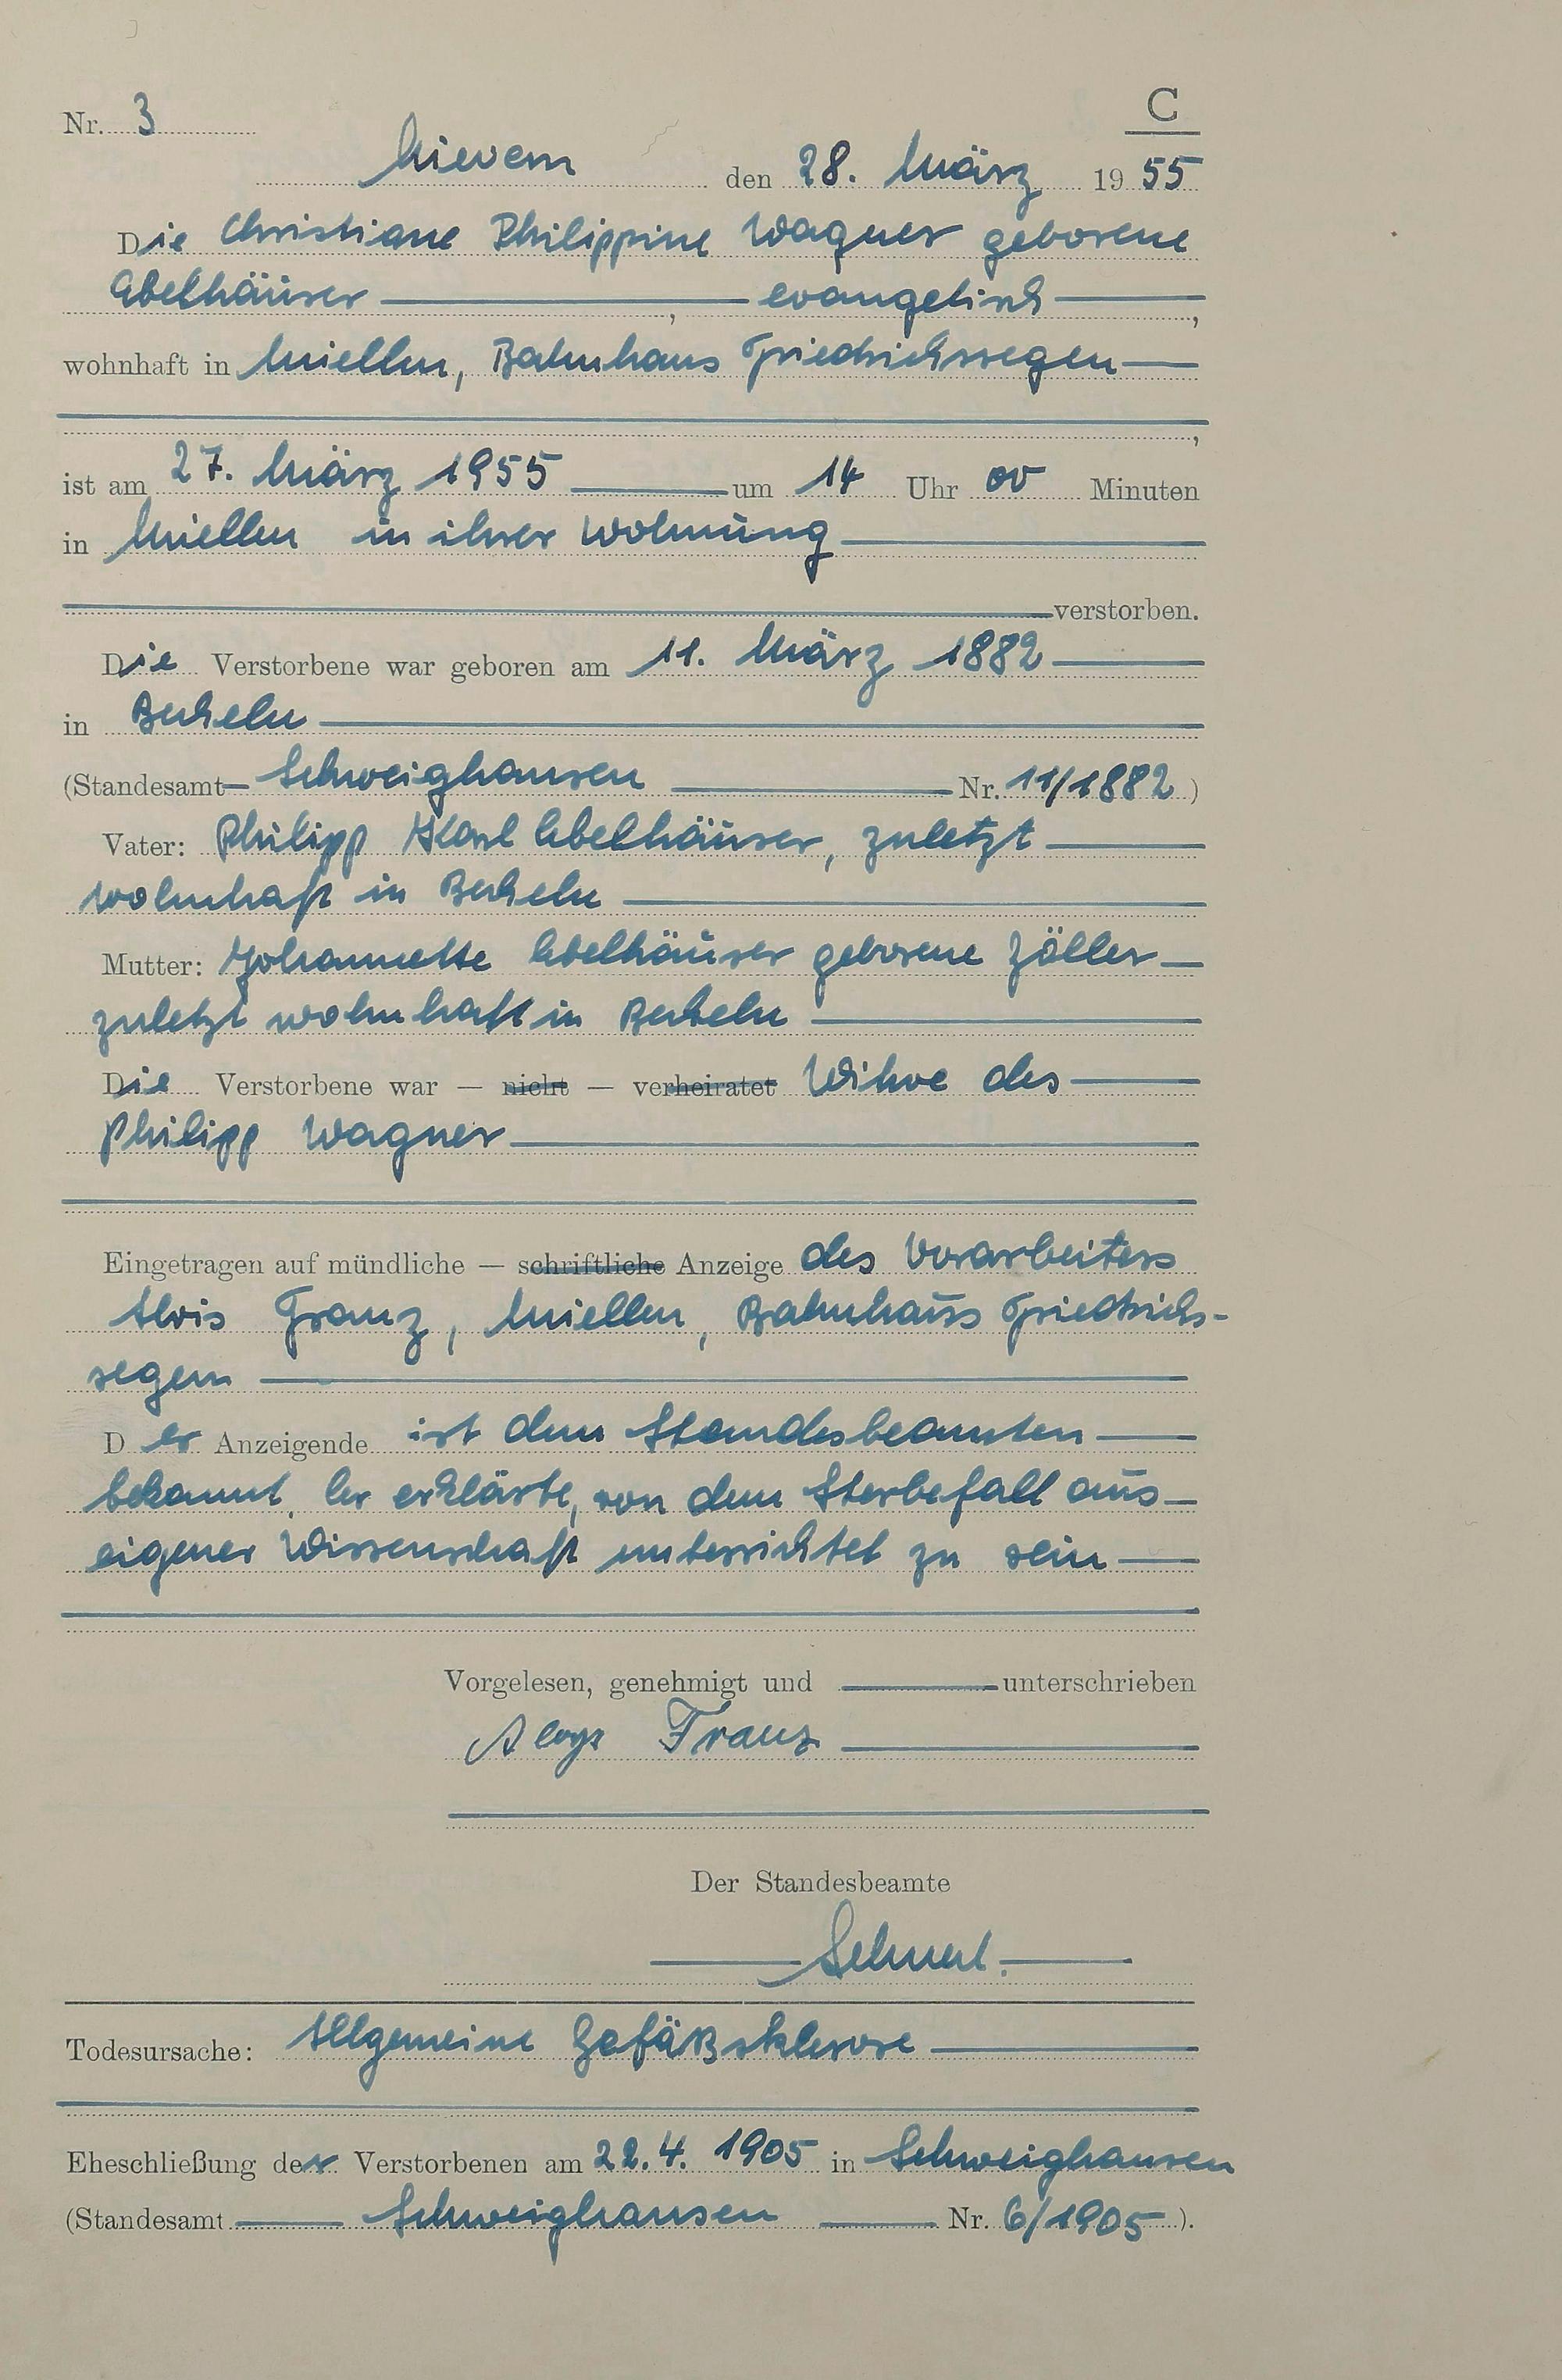 Nr. 3
C
Nievern den 28. März 1955
Die Christiane Philippine Wagner geborene
Ebelhäuser , evangelisch ,
wohnhaft in Miellen, Bahnhaus Friedrichssegen
,
ist am 27. März 1955 um 14 Uhr 00 Minuten
in Miellen in ihrer Wohnung
verstorben.
Die Verstorbene war geboren am 11. März 1882
in Becheln
(Standesamt Schweighausen Nr. 11/1882)
Vater: Philipp Karl Ebelhäuser, zuletzt
wohnhaft in Becheln
Mutter: Johannette Ebelhäuser geborene Zöller
zuletzt wohnhaft in Becheln
Die Verstorbene war — nicht — verheiratet Witwe des
Philipp Wagner
Eingetragen auf mündliche — schriftliche Anzeige des Vorarbeiters
Alois Franz, Miellen, Bahnhaus Friedrichs-
segen
Der Anzeigende ist dem Standesbeamten
bekannt. Er erklärte, von dem Sterbefall aus
eigener Wissenschaft unterrichtet zu sein
Vorgelesen, genehmigt und unterschrieben
Aloys Franz
Der Standesbeamte
Todesursache: Allgemeine Gefäßsklerose
Eheschließung der Verstorbenen am 22.4. 1905 in Schweighausen
(Standesamt Schweighausen Nr. 6/1905).